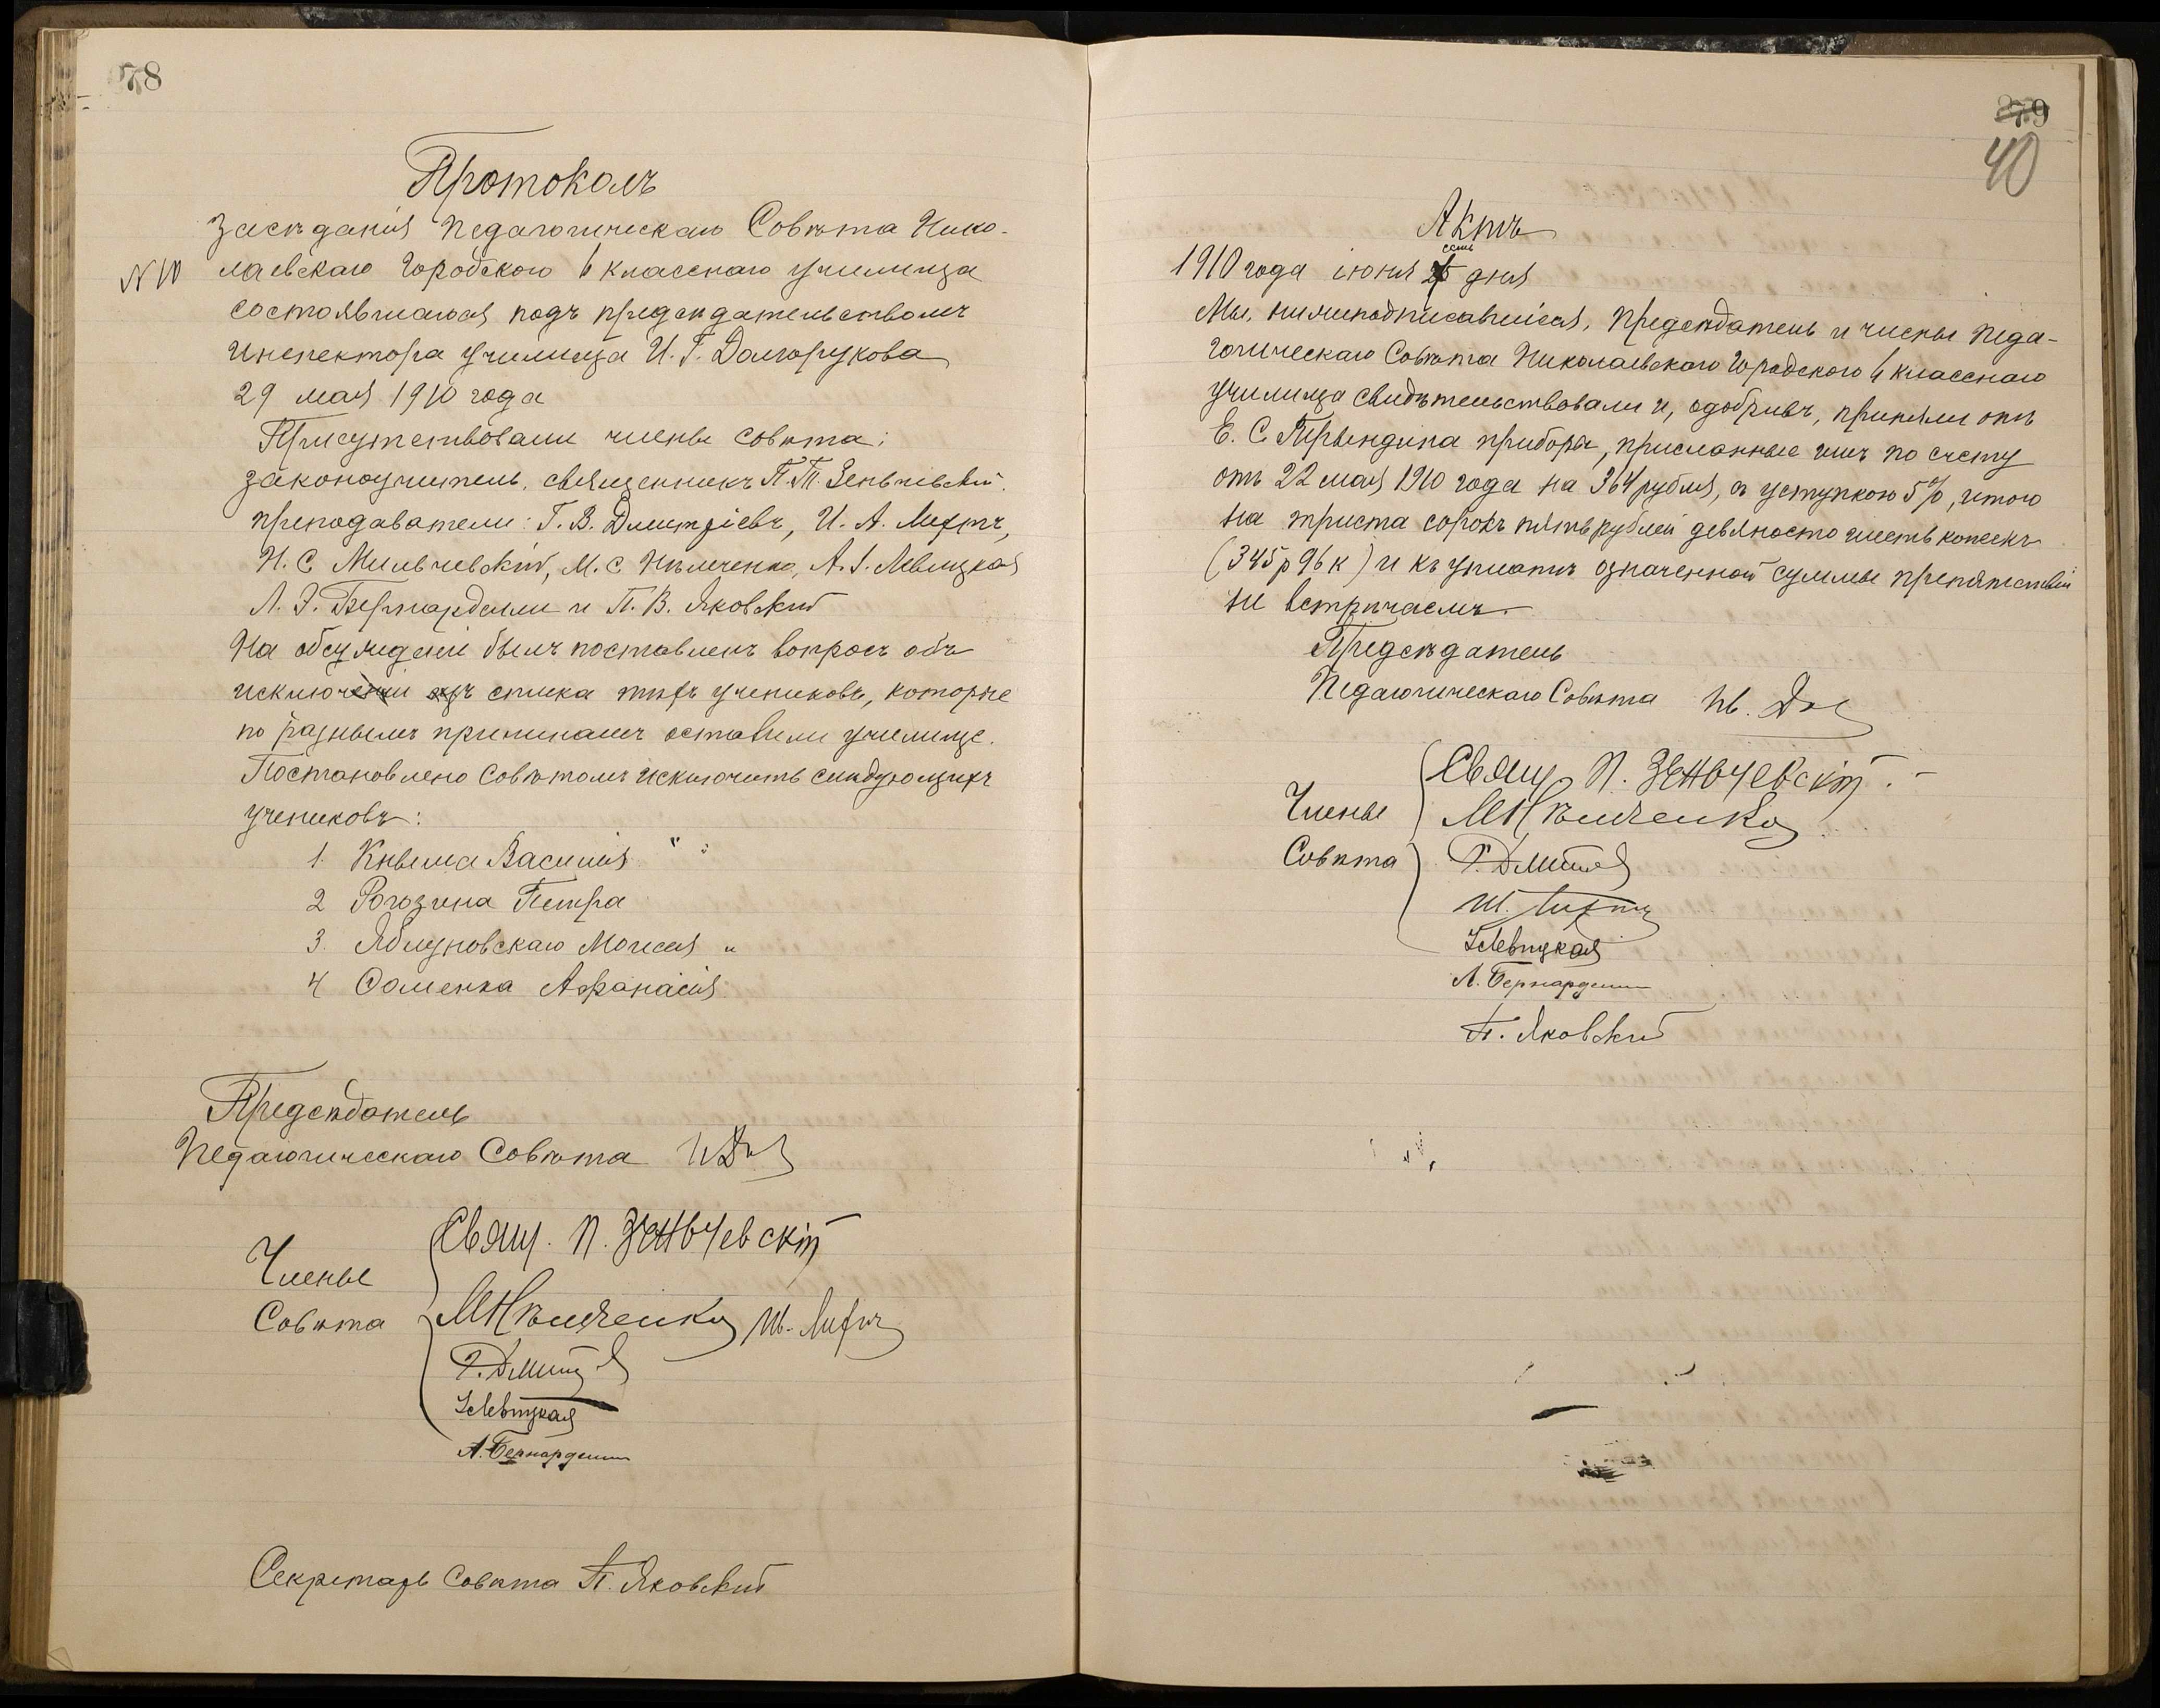 78
Протоколъ
Засѣданія Педагогическаго Совѣта Нико-
№ 10 лаевскаго Городского 4 класснаго училища
состоявшагося подъ предсѣдательствомъ
инспектора училища И. Г. Долгорукова
29 мая 1910 года
Присутствовали члены совѣта:
законоучитель, священникъ П. П. Зеньчевскій.
преподаватели: Г. В. Дмитріевъ, И. А. Лихтъ,
И. С. Мильчевскій, М. С. Нѣмченко, А. І. Левицкая
Л. Э. Бернарделли и П. В. Яковскій
На обсужденіи былъ поставленъ вопросъ объ
исключеніи изъ списка тѣхъ учениковъ, которые
по разнымъ причинамъ оставили училище.
Постановлено Совѣтомъ исключить слѣдующихъ
учениковъ:
1. Василія " "
2 Рогозина Петра
3. Яблуновскаго Моисея "
4 Соменка Афанасія
Предсѣдатель
Педагогическаго Совѣта
Члены
Совѣта
Свящ. П. Зеньчевскій
МНѣмченко И. Лихтъ
Г. Дмит
Левицкая
Л. Бернарделли
Секретарь Совѣта П. Яковскій
279
40
Актъ
1910 года іюня семь дня
Мы, нижеподписавшіеся, Предсѣдатель и члены Педа-
гогическаго Совѣта Николаевскаго Городского 4 класснаго
училища свидѣтельствовали и, одобривъ, приняли отъ
Е. С. Трындина приборы, присланные имъ по счету
отъ 22 мая 1910 года на 364 рубля, съ уступкою 5%, итого
на триста сорокъ пять рублей девяносто шесть копеекъ
(345 р 96 к) и къ уплатѣ означенной суммы препятствій
не встрѣчаемъ.
Предсѣдатель
Педагогическаго Совѣта Ив. Дол
Члены
Совѣта
Свящ. П. Зеньчевскій. -
МНѣмченко
Г. Дмит
И. Лихтъ
Левицкая
Л. Бернарделли
П. Яковскій